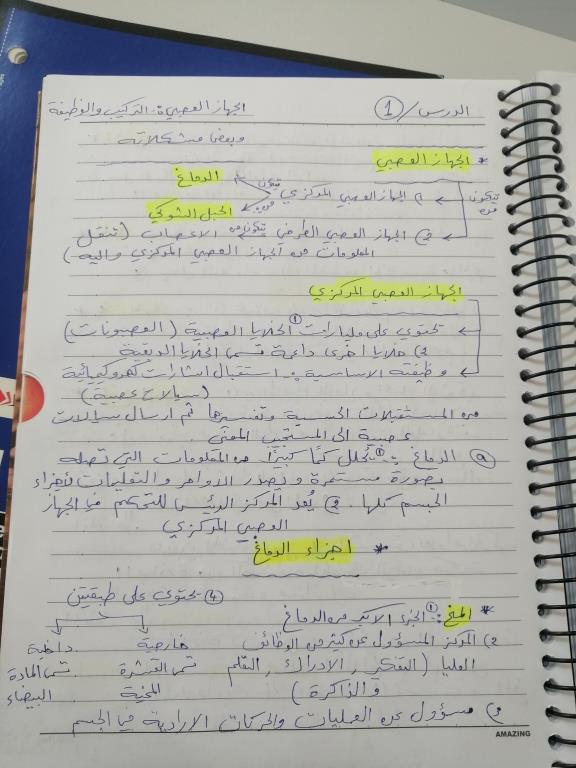 الدرس / 1 الجهاز العصبي: التركيب والوظيفة
وبعض مشكلاته
* الجهاز العصبي
يتكون من
1) الجهاز العصبي المركزي يتكون من الدماغ
الحبل الشوكي
2) الجهاز العصبي الطرفي يتكون من الاعصاب (تنقل
المعلومات من الجهاز العصبي المركزي واليه)
الجهاز العصبي المركزي
تحتوي على مليارات 1) الخلايا العصبية (العصبونات)
2) خلايا اخرى داعمة تسمى الخلايا الدبقية
وظيفته الاساسية: استقبال اشارات كهروكيميائية
(سيالات عصبية)
من المستقبلات الحسية وتفسيرها ثم ارسال سيالات
عصبية الى المستجيب المعني
a) الدماغ: 1) يُحلل كمًا كبيرًا من المعلومات التي تصله
بصورة مستمرة ويصدر الاوامر والتعليمات لأجزاء
الجسم كلها. 2) يُعد المركز الرئيس للتحكم في الجهاز
العصبي المركزي
* اجزاء الدماغ
* المخ: 1) الجزء الاكبر من الدماغ
2) المركز المسؤول عن كثير من الوظائف
العليا (التفكير, الادراك, التعلم
و الذاكرة)
3) مسؤول عن العمليات والحركات الارادية في الجسم
4) يحتوي على طبقتين
خارجية
تسمى القشرة
المخية
داخلية
تسمى المادة
البيضاء
AMAZING